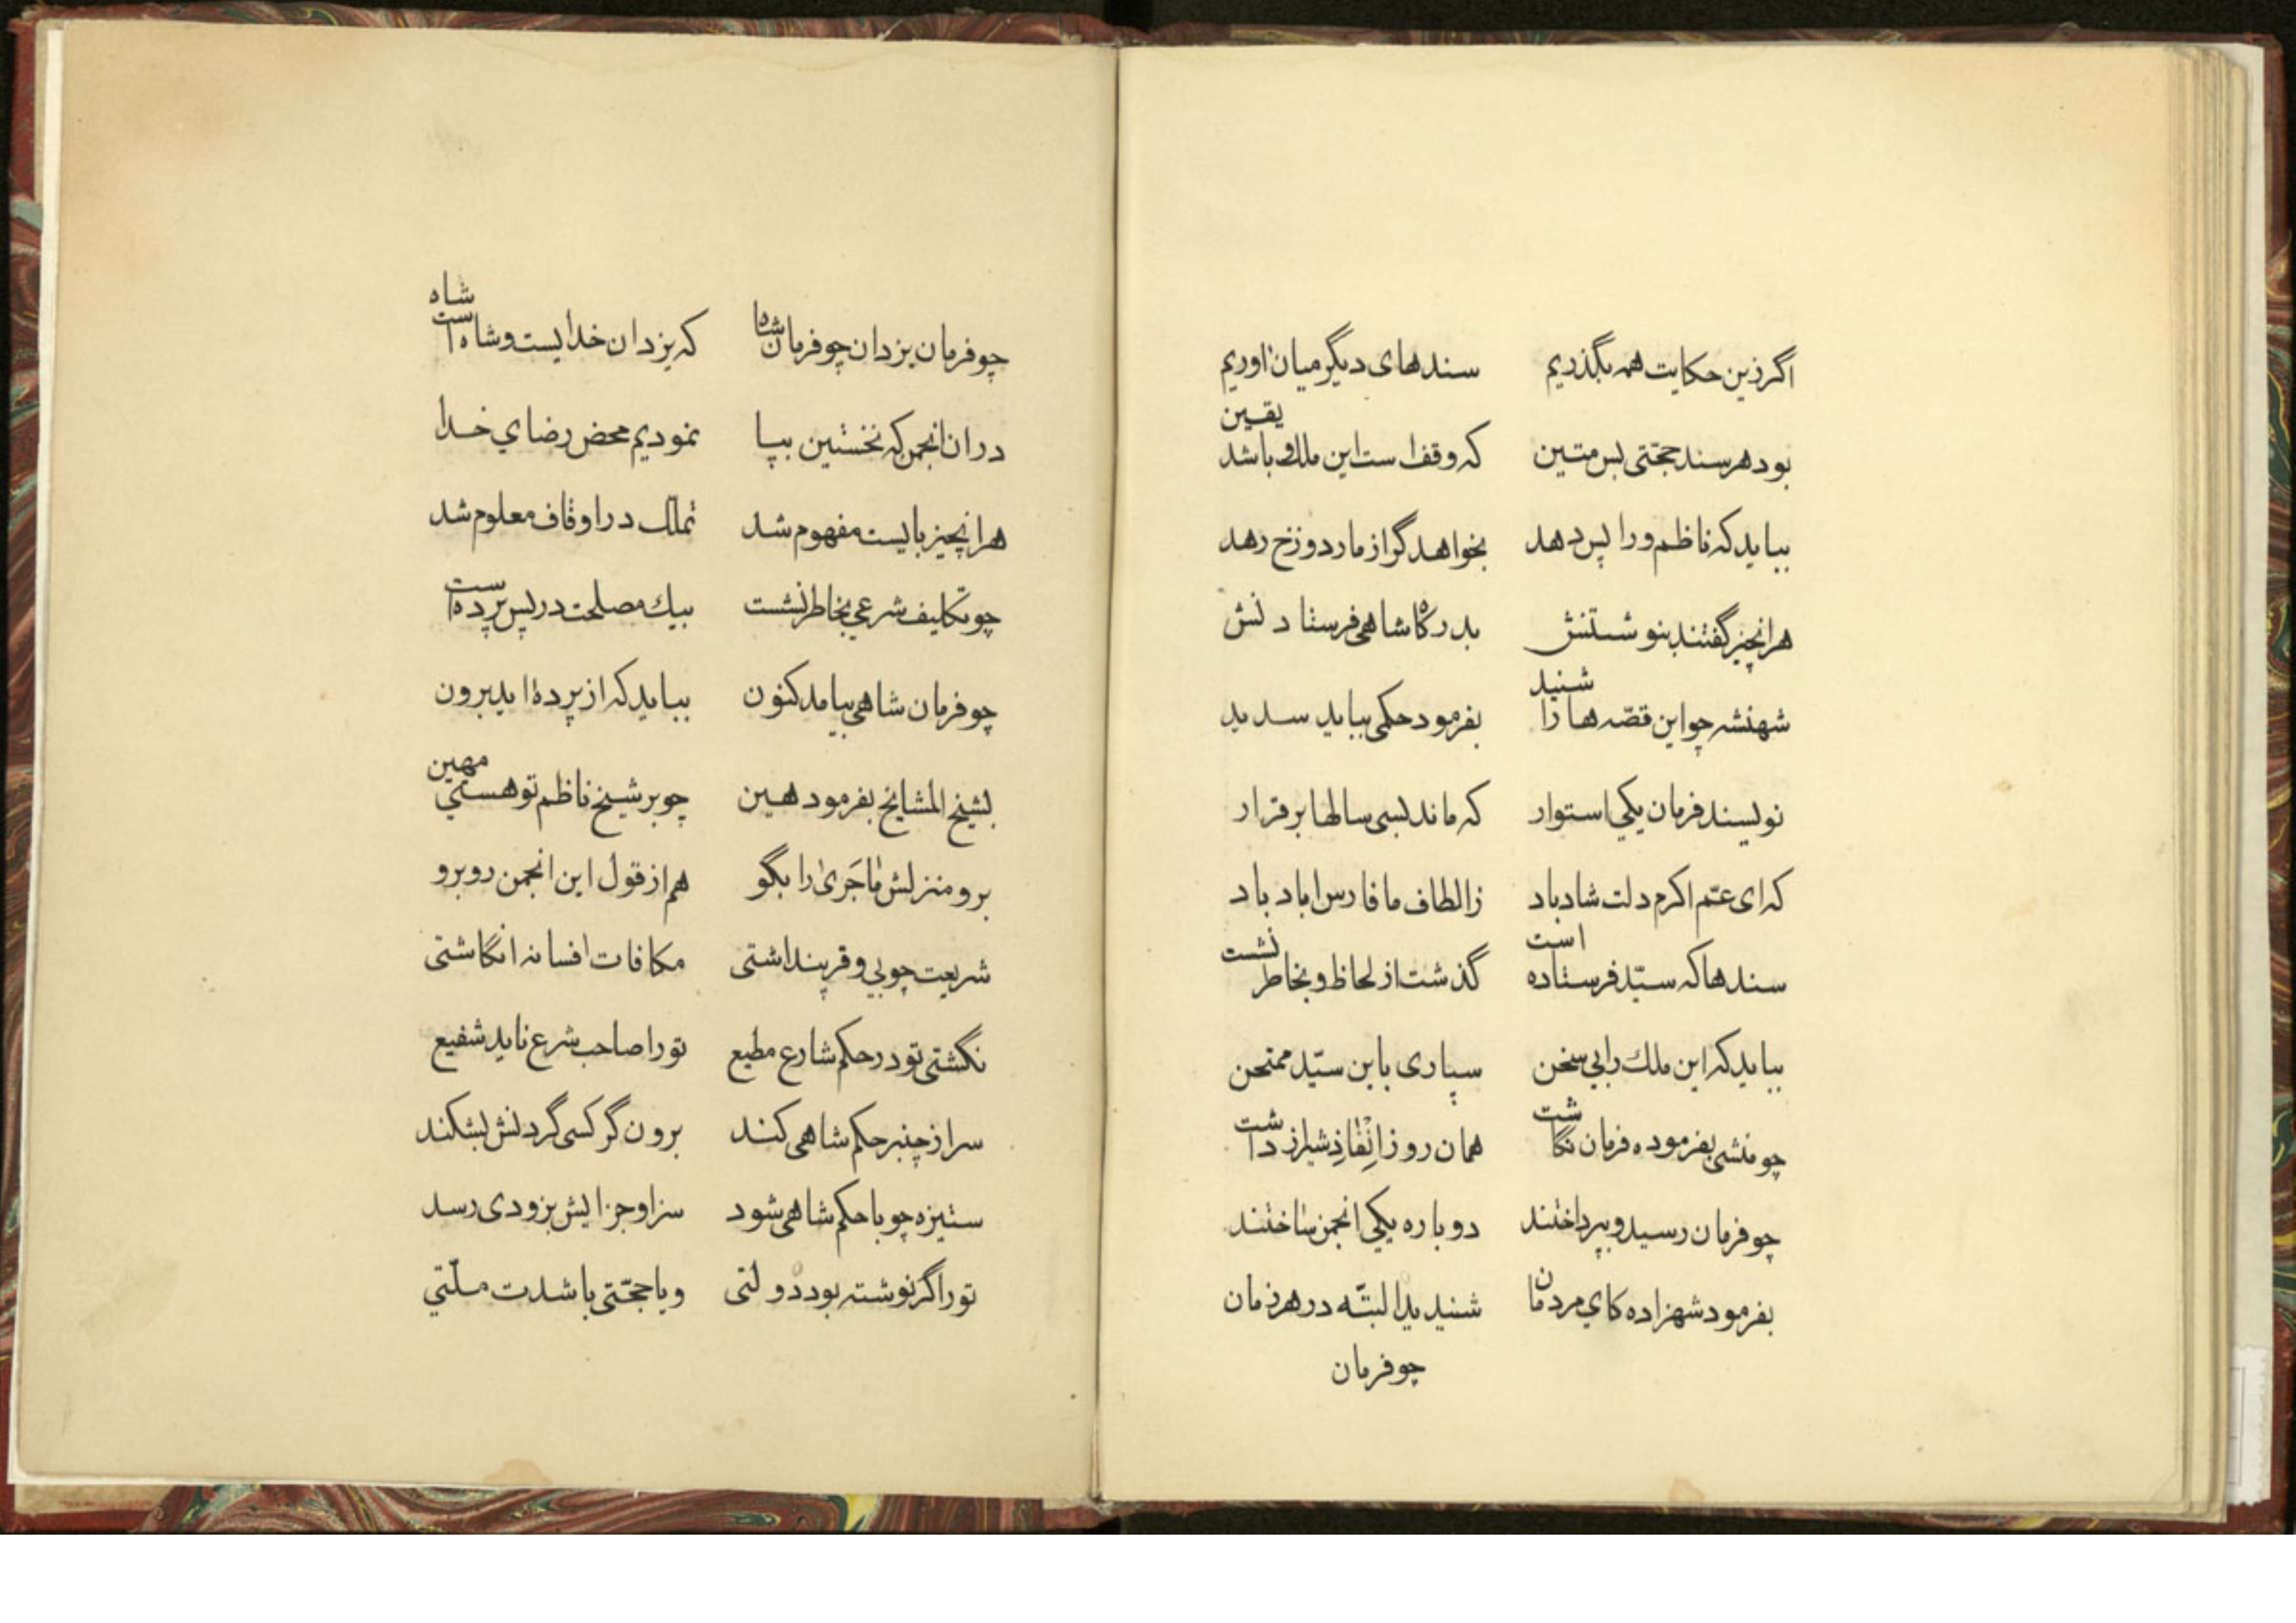 اگر زین حکایت همه بگذریم سندهای دیگر میان اوریم
بود هر سند حجتی بس متین که وقف است این ملک و باشد یقین
بباید که ناظم ورا پس دهد بخواهد گر از مار دوزخ رهد
هرانچیز گفتند بنوشتنش بدرگاه شاهی فرستادنش
شهنشه چو این قصّه ها را شنید بفرمود حکمی بباید سدید
نویسند فرمان یکی استوار که ماند بسی سالها برقرار
که ای عمّ اکرم دلت شاد باد ز الطاف ما فارس اباد باد
سندها که سیّد فرستاده است گذشت از لحاظ و بخاطر نشست
بباید که این ملک را بی سخن سپاری باین سیّد ممتحن
چو منشی بفرموده فرمان نگاشت همان روز اِنْفاذِ شیراز داشت
چو فرمان رسید و بپرداختند دوباره یکی انجمن ساختند
بفرمود شهزاده کای مردمان شنید یدالبتّه در هر زمان
چو فرمان
چو فرمان یزدان چو فرمان شاه که یزدان خدایست و شاه است شاه
دران انجمن که نخستین بپا نمودیم محض رضای خدا
هرانچیز بایست مفهوم شد تملک در اوقاف معلوم شد
چو تکلیف شرعی بخاطر نشست بیك مصلحت در پس پرده است
چو فرمان شاهی بیامد کنون بباید که از پرده اید برون
بشیخ المشایخ بفرمود هین چو بر شیخ ناظم تو هستی مهین
برو منزلش مٰاجَریٰ را بگو هم از قول این انجمن روبرو
شریعت چو بی وقر پنداشتی مکافات افسانه انگاشتی
نگشتی تو در حکم شارع مطیع تو را صاحب شرع ناید شفیع
سر از چنبر حکم شاهی کند برون گر کسی گردنش بشکند
ستیزه چو با حکم شاهی شود سزا و جزایش بزودی رسد
تو را گر نوشته بود دولتی و یا حجّتی باشدت ملّتی